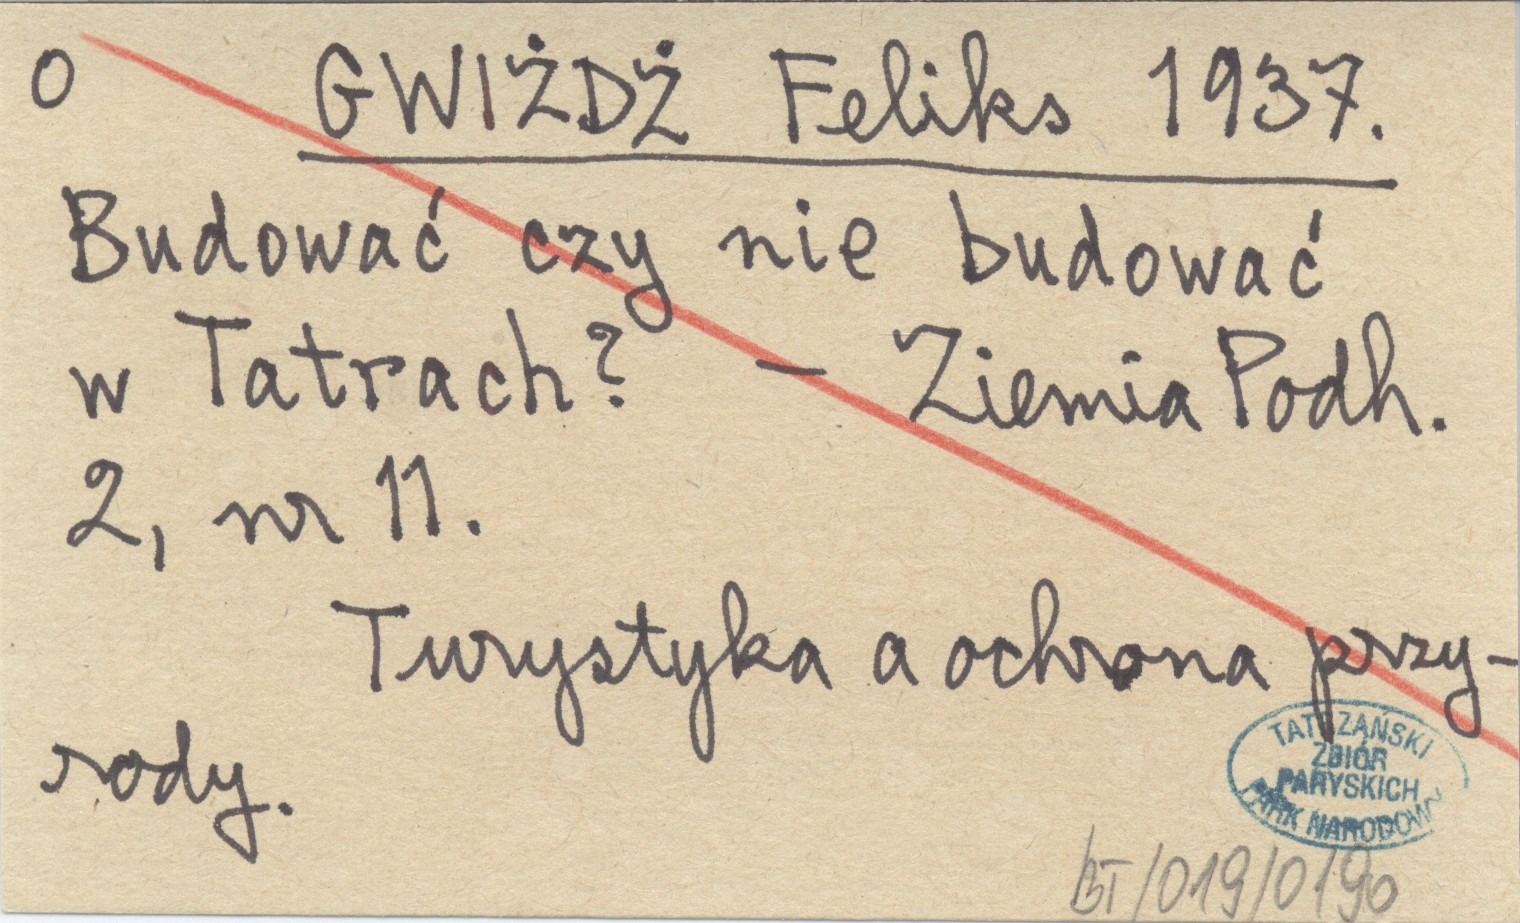 O GWIŻDŻ Feliks 1937.
Budować czy nie budować
w Tatrach? – Ziemia Podh.
2, nr 11.
Turystyka a ochrona przy-
rody.
TATRZAŃSKI
ZBIÓR
PARYSKICH
PARK NARODOWY
BT/019/0190